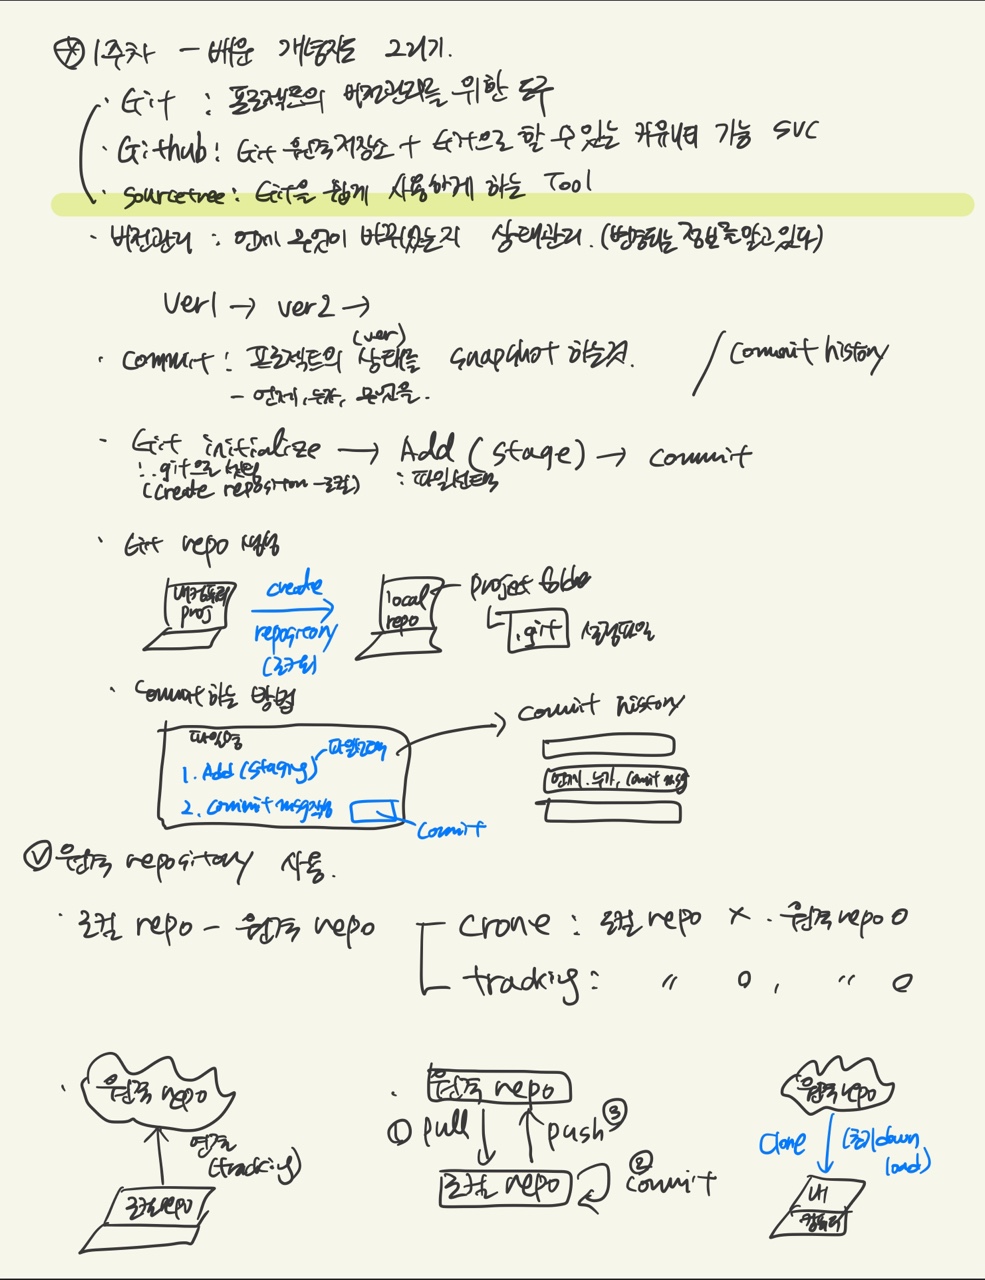 1주차 - 배운 개념지도 그리기.
· Git : 프로젝트의 버전관리를 위한 도구
· Github : Git 원격저장소 + Git으로 할 수 있는 커뮤니티 기능 SVC
· sourcetree : Git을 쉽게 사용하게 하는 Tool
· 버전관리 : 언제 무엇이 바뀌었는지 상태관리. (변경되는 정보를 알고있다)
Ver1 → ver2 →
(ver)
· Commit : 프로젝트의 상태를 snapshot 하는것. / Commit history
- 언제, 누가, 무엇을.
· Git initialize → Add (stage) → commit
: .git으로 셋팅 : 파일선택
(Create repository - 로컬)
· Git repo 생성
내컴퓨터 proj
create repository (로컬)
local repo
project folder
.git 설정파일
· Commit 하는 방법
파일수정
1. Add (staging) 파일선택
2. Commit msg작성
Commit
Commit history
언제. 누가, Commit msg
원격 repository 사용.
· 로컬 repo - 원격 repo
crone : 로컬 repo X. 원격 repo O
tracking : " O, " O
· 원격 repo
연결 (tracking)
로컬repo
· 원격 repo
① pull
push ③
로컬 repo
② Commit
원격repo
Clone
(초기 download)
내 컴퓨터